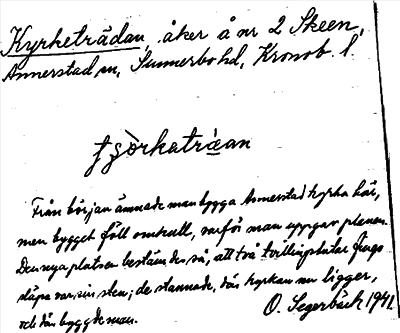 Kyrketrädan, åker å nr 2 Skeen,
Annerstad sn, Sunnerbo hd, Kronob. l.
Från början ämnade man bygga Annerstad kyrka här,
men bygget föll omkull, varför man uppgav planen.
Den nya platsen bestämdes så, att två tvillingstutar fingo
släpa var sin sten; de stannade, där kyrkan nu ligger,
och där byggde man.
O. Segerbäck 1941.